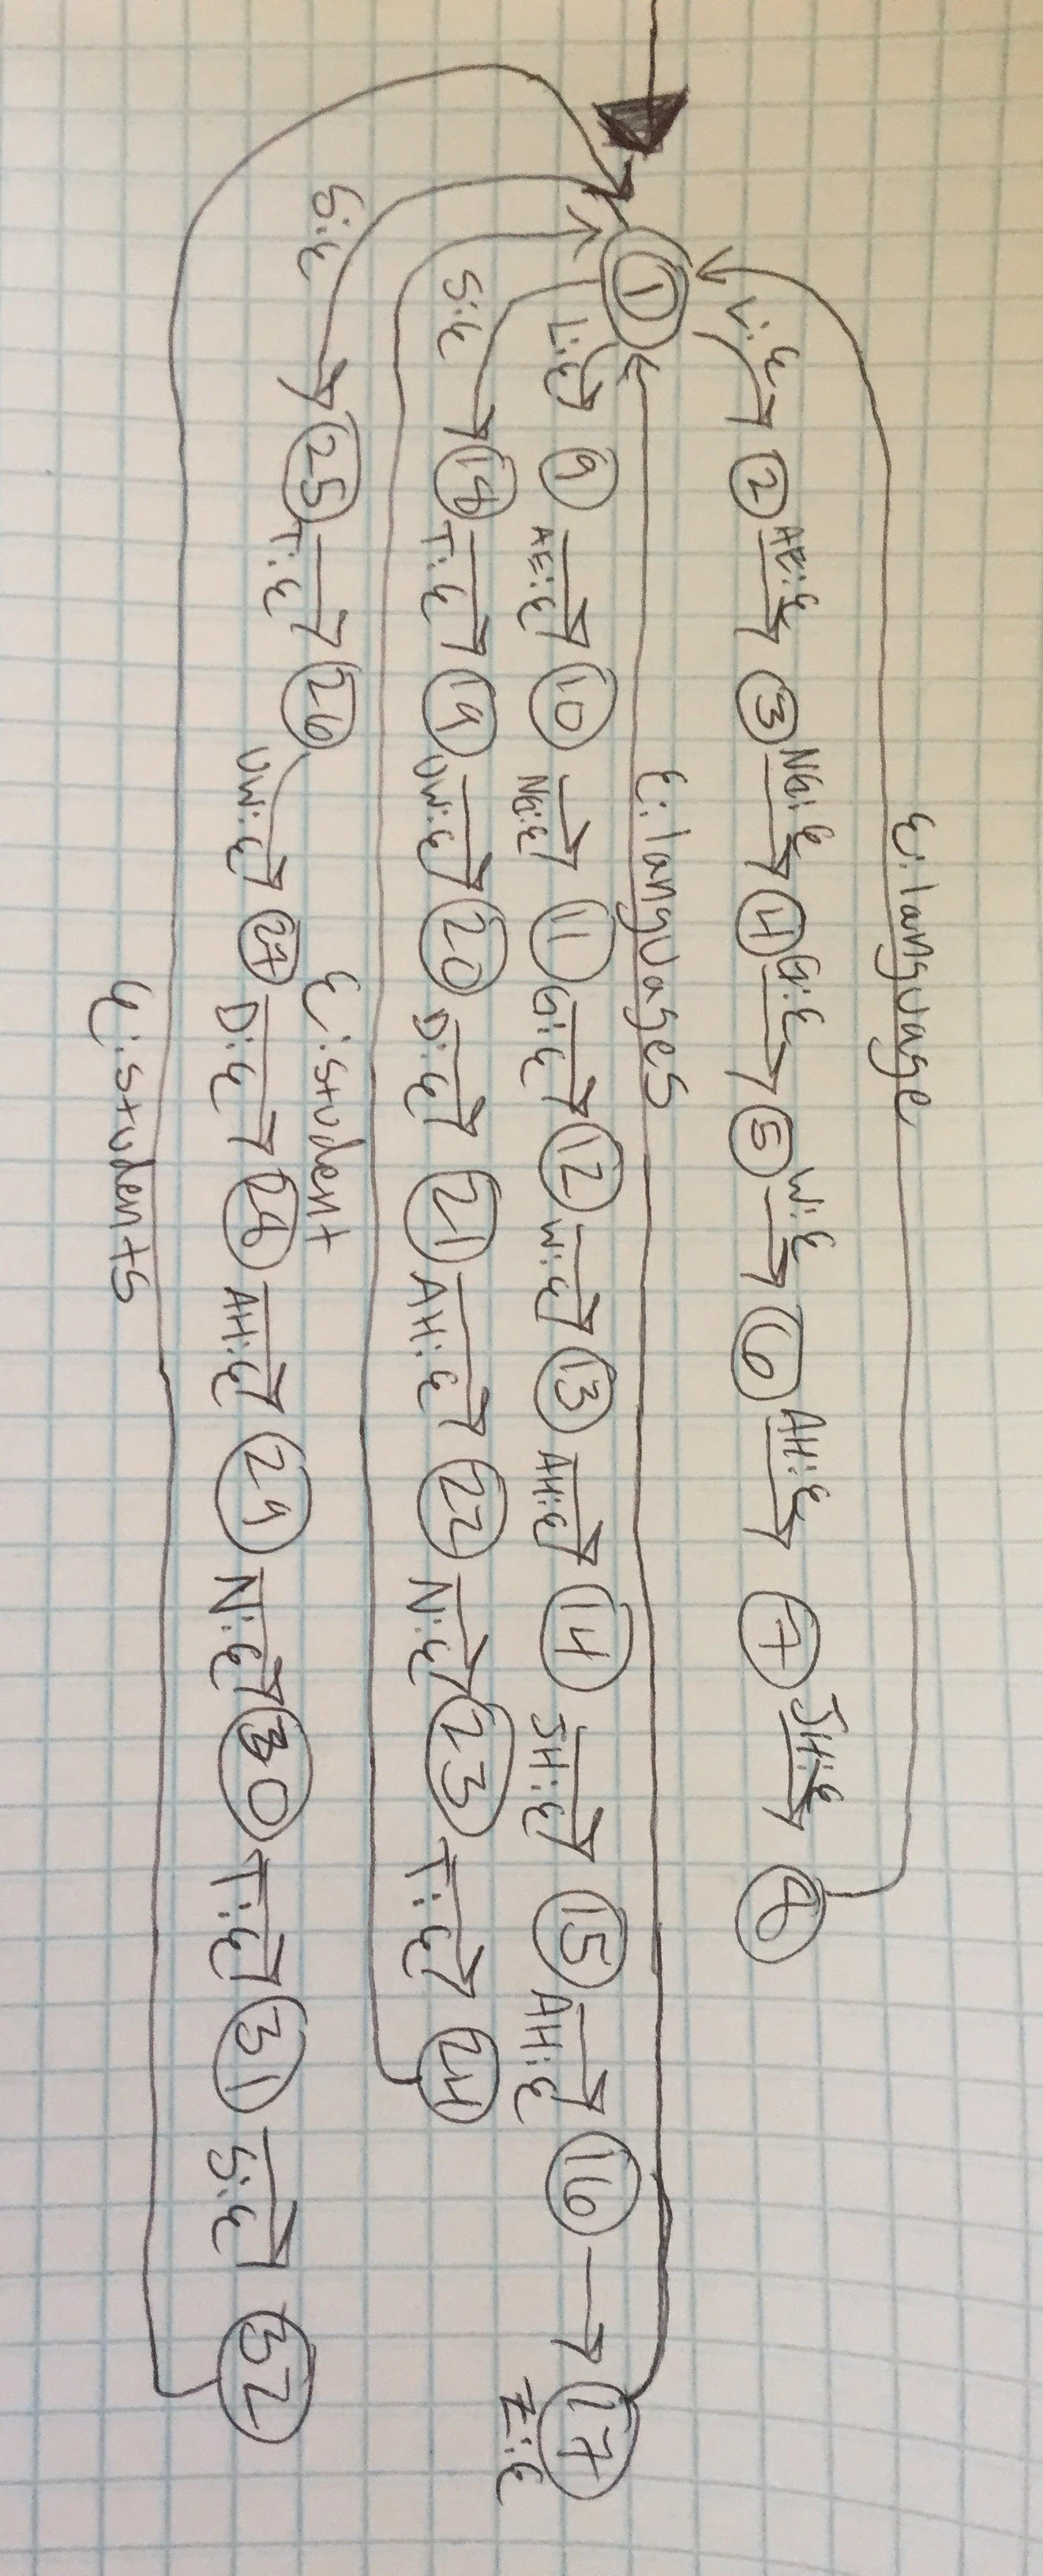 ε:language
L:ε 2 AE:ε 3 NG:ε 4 G:ε 5 W:ε 6 AH:ε 7 JH:ε 8
1
ε:languages
L:ε 9 AE:ε 10 NG:ε 11 G:ε 12 W:ε 13 AH:ε 14 JH:ε 15 AH:ε 16 Z:ε 17
S:ε 18 T:ε 19 UW:ε 20 D:ε 21 AH:ε 22 N:ε 23 T:ε 24
ε:student
S:ε 25 T:ε 26 UW:ε 27 D:ε 28 AH:ε 29 N:ε 30 T:ε 31 S:ε 32
ε:students